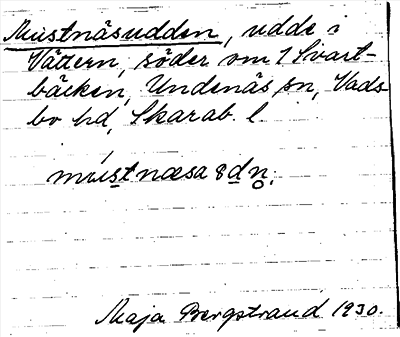 Mustnäsudden, udde i
Vättern, söder om 1 Svart-
bäcken, Undenäs sn, Vads-
bo hd, Skarab. l.
mustnæsa8dn.
Maja Bergstrand 1930.